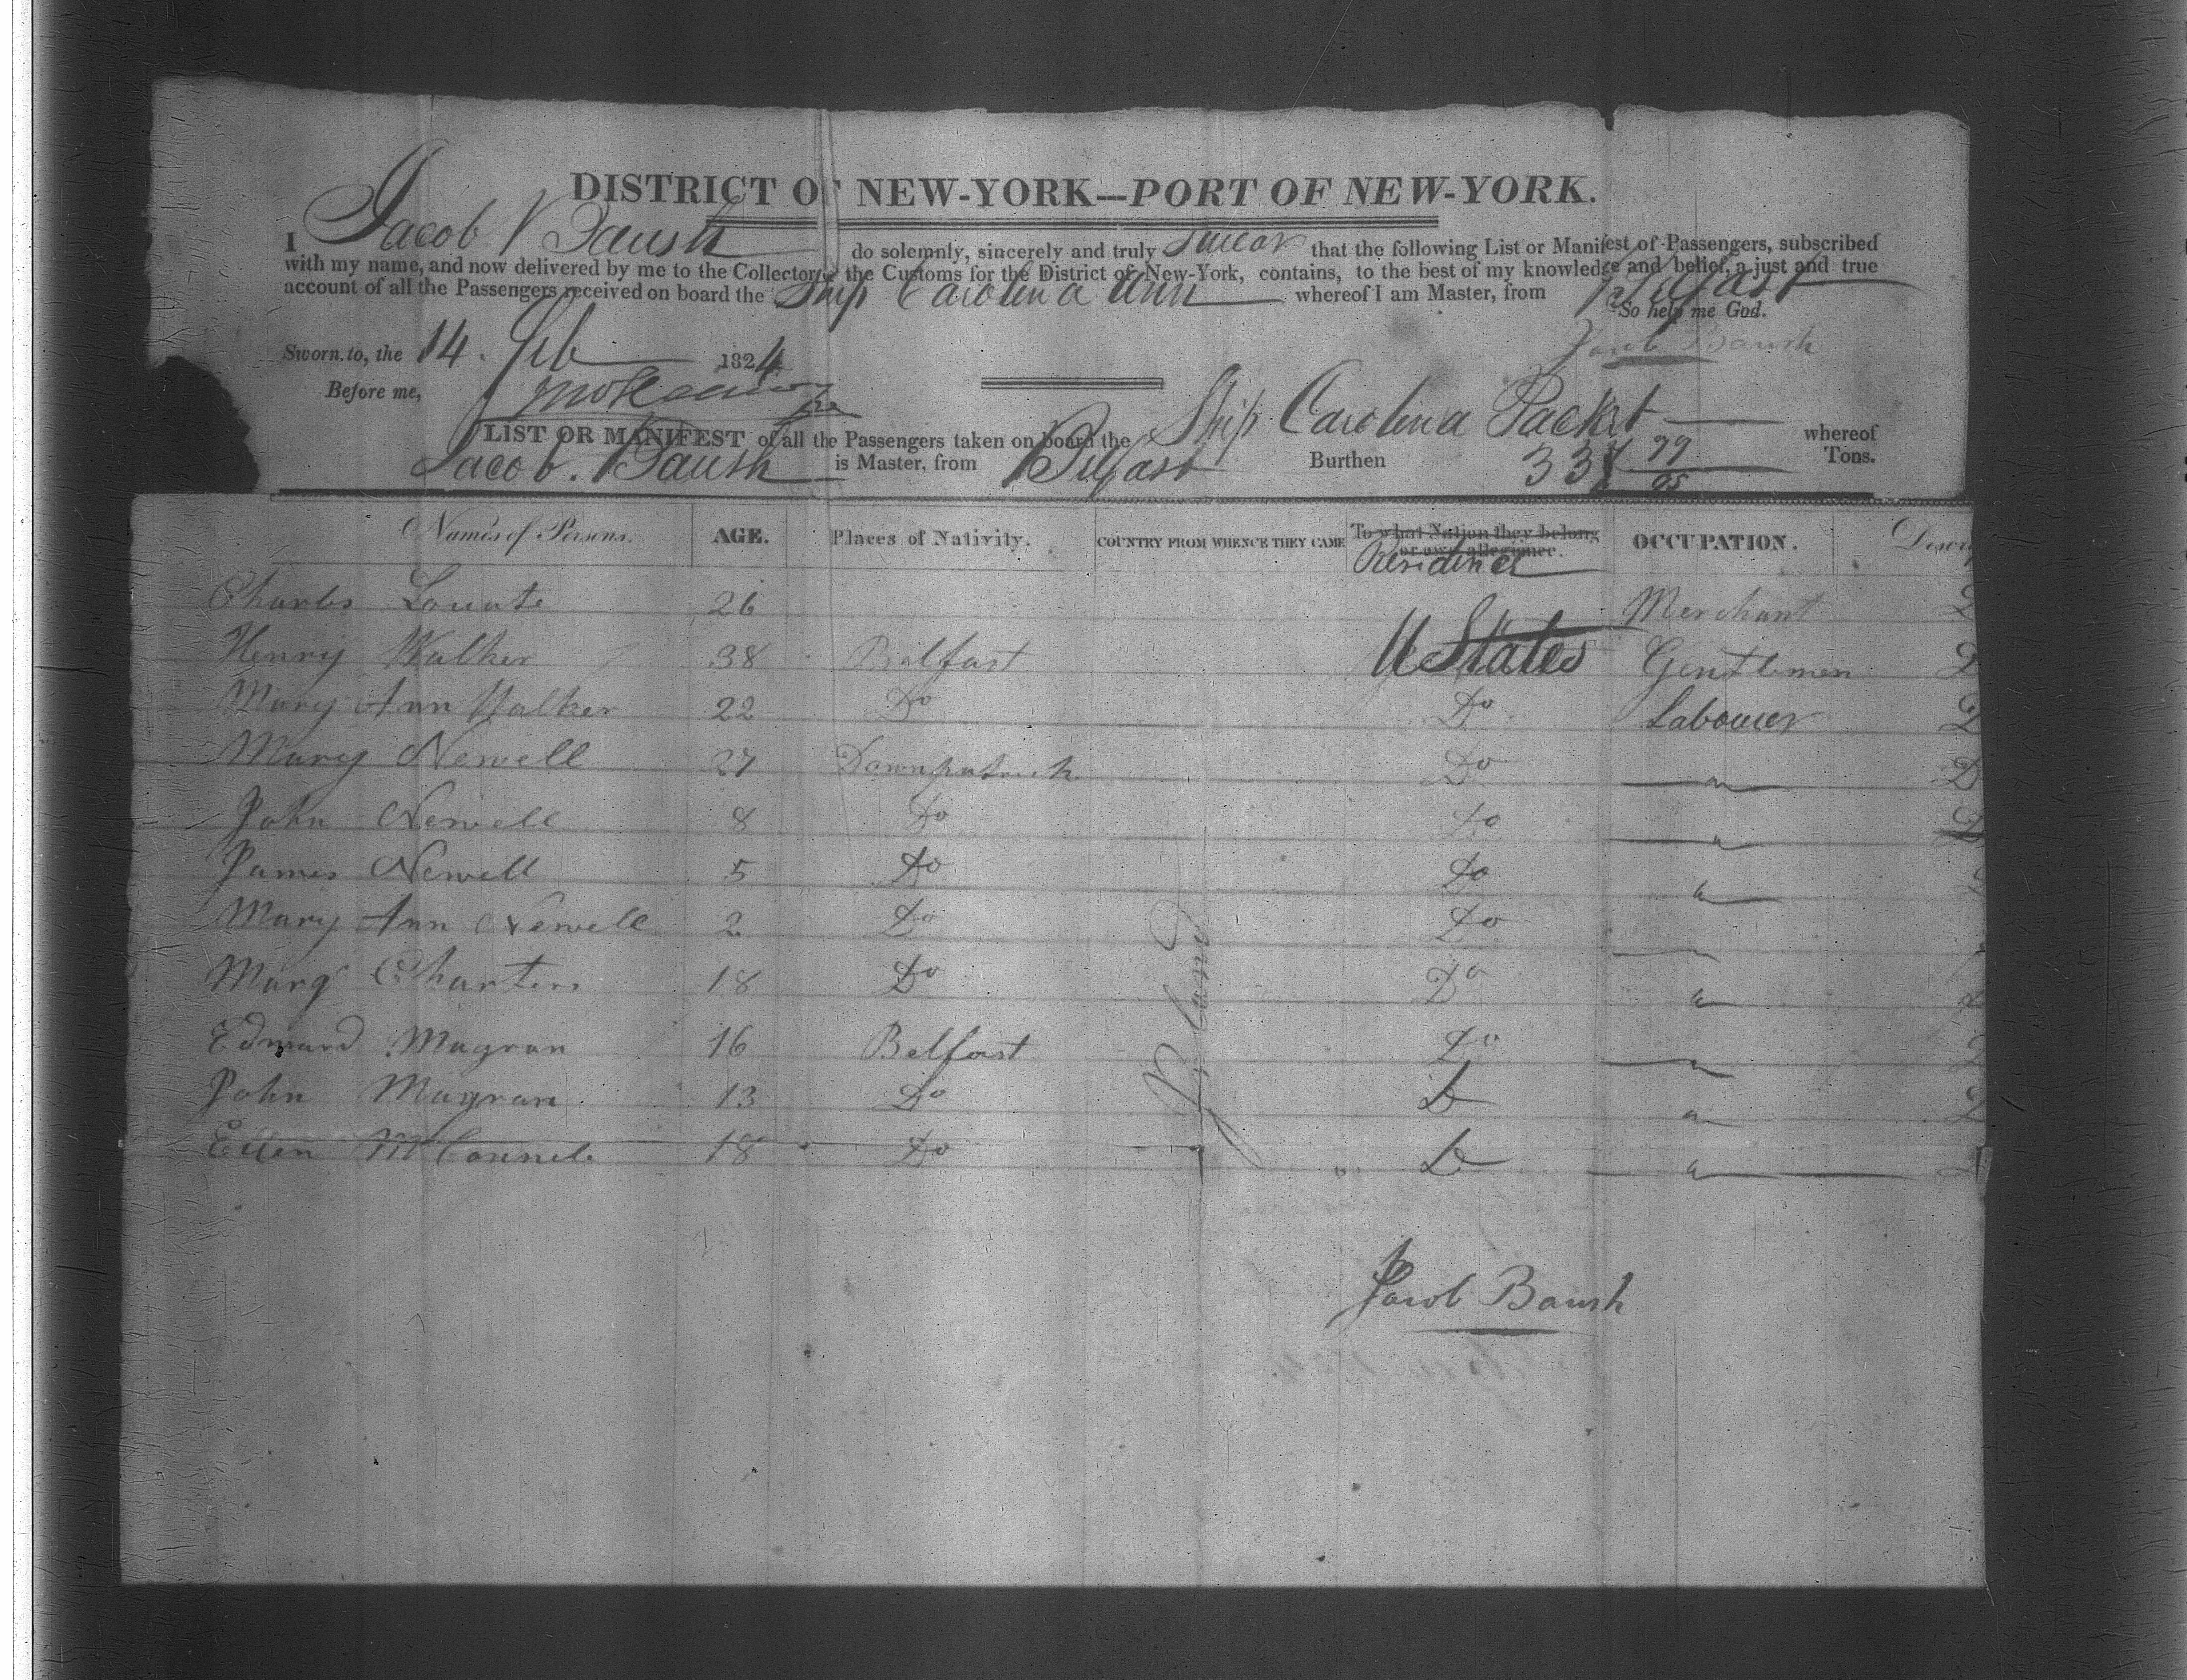 DISTRICT OF NEW-YORK---PORT OF NEW-YORK.
I Jacob Baush do solemnly, sincerely and truly Swear that the following List or Manifest of Passengers, subscribed
with my name, and now delivered by me to the Collector of the Customs for the District of New-York, contains, to the best of my knowledge and belief, a just and true
account of all the Passengers received on board the Ship Carolina Ann whereof I am Master, from Belfast
So help me God.
Sworn to, the 14. Feb 1824
Jacob Baush
Before me,
LIST OR MANIFEST of all the Passengers taken on board the Ship Carolina Packet whereof
Jacob. Baush is Master, from Belfast Burthen Tons.
Names of Persons. AGE. Places of Nativity. COUNTRY FROM WHENCE THEY CAME To what Nation they belong or owe allegiance. Residence OCCUPATION.
Charles 26 Merchant
Henry Walker 38 Belfast U States Gentlemen
Mary Ann Walker 22 Do Do Labourer
Mary Newell 27 Downpatrick Do "
John Newell 8 Do Do "
James Newell 5 Do Do "
Mary Ann Newell 2 Do Do
Marg Charters 18 Do Do "
Edward Magran 16 Belfast Do "
John Magran 13 Do D "
Ellen 18 Do D "
Jacob Baush